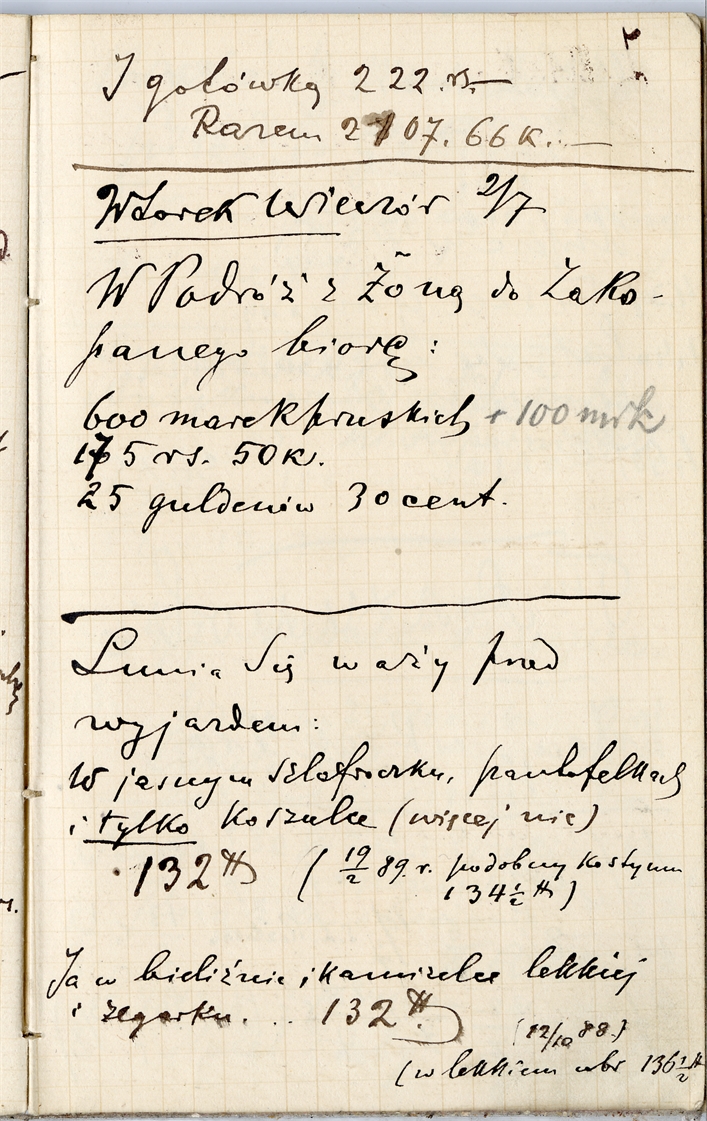 I gotówką 222.rs.—
Razem 2107. 66 K.—
Wtorek Wieczór 2/7
W Podróż z Żoną do Zako-
panego biorę:
600 marek pruskich + 100 mrk
175 rs. 50 K.
25 guldenów 30 cent.
Lunia się waży przed
wyjazdem:
W jasnym szlafroczku, pantofelkach
i tylko koszulce (więcej nic)
132 ℔ (19/2 89. r. podobny kostyum
134 1/2 ℔)
Ja w bieliźnie i kamizelce lekkiej
i zegarku. .. 132 ℔.
(12/10 88.)
(w lekkiem ubr 136 1/2 ℔